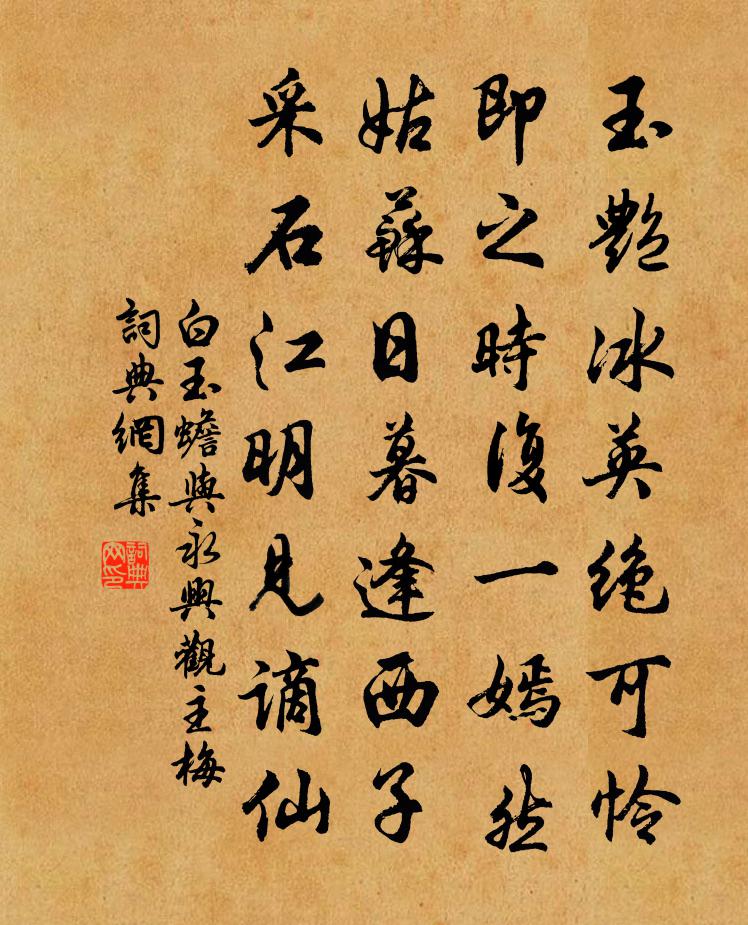 玉艷冰英絶可怜
即之時復一嫣然
姑蘇日暮逢西子
采石江明見謫仙
白玉蟾與永興觀主梅
詞典網集
詞典網印